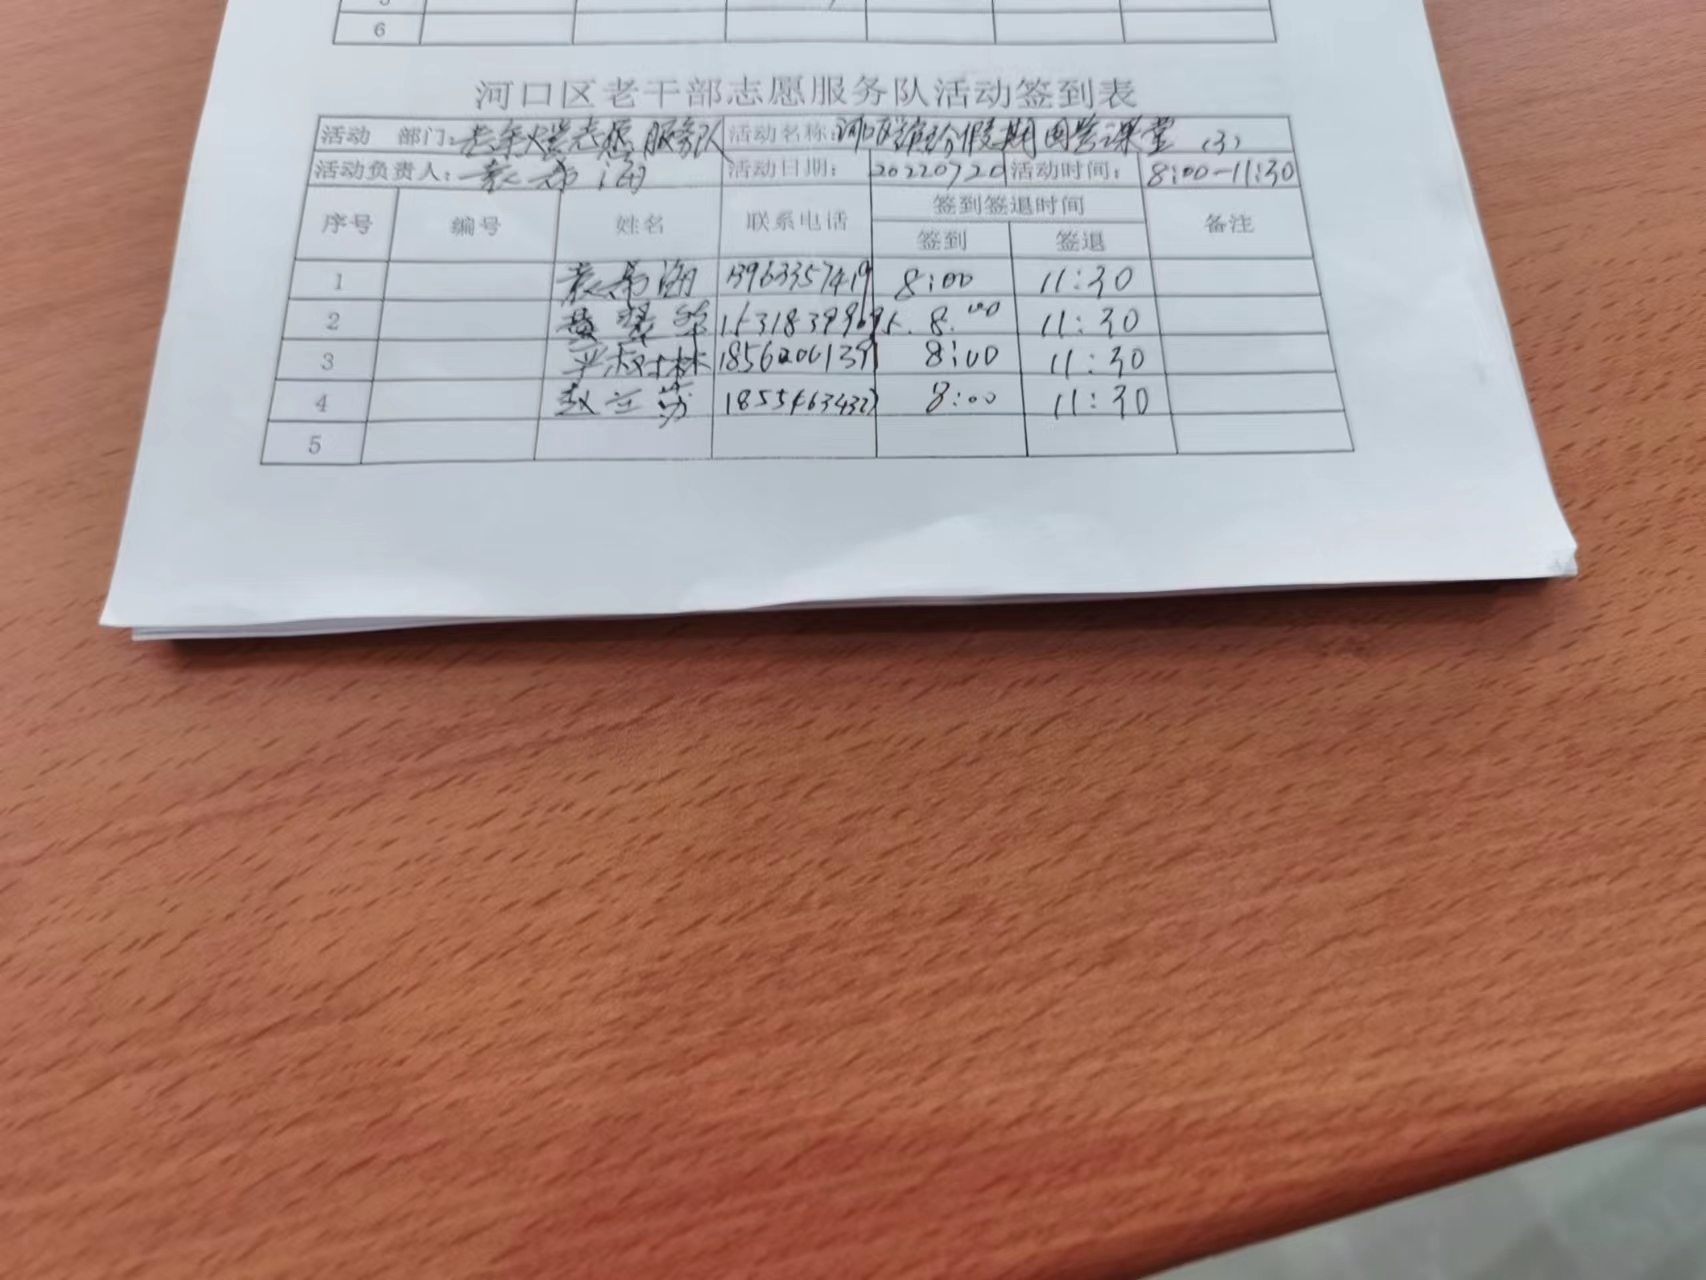 6
河口区老干部志愿服务队活动签到表
活动 部门: 志愿服务队 活动名称: 河口区 假期国学课堂 (3)
活动负责人: 袁希海 活动日期: 20220720 活动时间: 8:00-11:30
序号 编号 姓名 联系电话 签到签退时间 备注
签到 签退
1 袁希海 13963357419 8:00 11:30
2 8:00 11:30
3 8:00 11:30
4 8:00 11:30
5